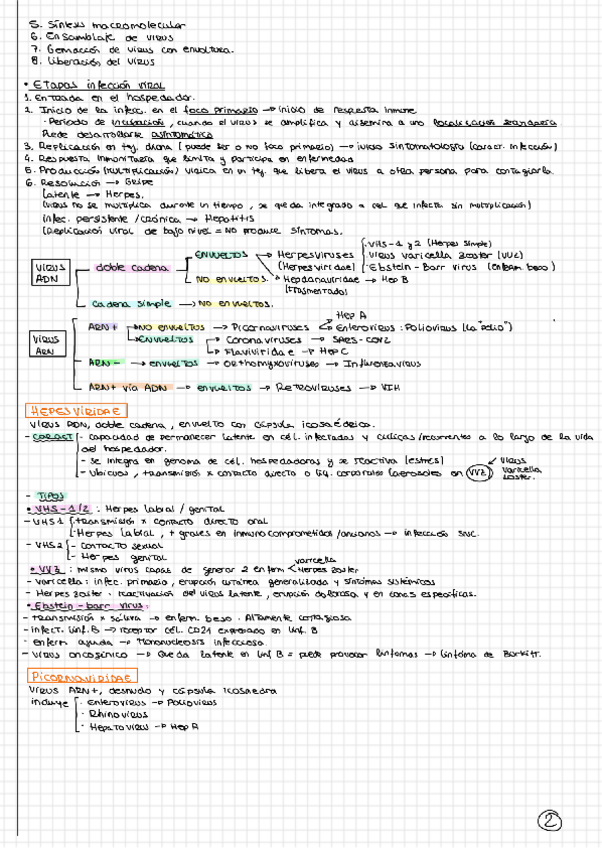 5. Síntesis macromolecular
6. Ensamblaje de virus
7. Gemación de virus con envoltura.
8. Liberación del virus
• Etapas infección viral
1. Entrada en el hospedador.
2. Inicio de la infecc. en el foco primario → inicio de respuesta inmune
- Periodo de incubación, cuando el virus se amplifica y disemina a una localización secundaria
Puede desarrollarse asintomática
3. Replicación en tej. diana (puede ser o no foco primario) → inicio sintomatología (caract. infección)
4. Respuesta inmunitaria que limita y participa en enfermedad
5. Producción (multiplicación) vírica en un tej. que libera el virus a otra persona para contagiarla.
6. Resolución → Gripe
Latente → Herpes.
(virus no se multiplica durante un tiempo, se queda integrado a cél que infecta sin multiplicación)
Infec. persistente / crónica → Hepatitis
(Replicación viral de bajo nivel = NO produce síntomas.
VIRUS ADN
doble cadena
ENVUELTOS → Herpesviruses (Herpesviridae)
- VHS-1 y 2 (Herpes simple)
- Virus varicella zoster (VVZ)
- Ebstein-Barr virus (enferm. beso)
Hepdanaviridae → Hep B
(Fragmentados)
NO envueltos
Cadena simple → NO envueltos.
VIRUS ARN
ARN+ → NO envueltos → Picornaviruses
Hep A
Enterovirus: Poliovirus (la "polio")
Envueltos → Coronaviruses → SARS-COV2
Flaviviridae → Hep C
ARN- → envueltos → Orthomyxoviruses → Influenzavirus
ARN+ vía ADN → envueltos → Retroviruses → VIH
HERPESVIRIDAE
Virus ADN, doble cadena, envuelto con cápsula icosaédrica.
- CARACT - capacidad de permanecer latente en cél. infectadas y cíclicas/recurrentes a lo largo de la vida
del hospedador.
- Se integra en genoma de cél. hospedadoras y se reactiva (estrés)
- Ubicuos, transmisión x contacto directo o líq. corporales (aerosoles en VVZ)
virus varicella zoster.
- Tipos
• VHS-1/2: Herpes labial / genital
- VHS1 transmisión x contacto directo oral
Herpes labial, + graves en inmunocomprometidos/ancianos → infección SNC.
- VHS2 - contacto sexual
- Herpes genital
• VVZ: mismo virus capaz de generar 2 enferm
varicella
Herpes zoster
- Varicella: infec. primaria, erupción cutánea generalizada y síntomas sistémicos
- Herpes zoster: reactivación del virus latente, erupción dolorosa y en zonas específicas.
• Ebstein-barr virus:
- transmisión x saliva → enferm. beso. Altamente contagiosa
- infect. linf. B → receptor cél. CD21 expresado en linf. B
- enferm aguda → Mononucleosis infecciosa
- Virus oncogénico → Queda latente en linf. B = puede provocar linfomas → linfoma de Burkitt.
PICORNAVIRIDAE
Virus ARN+, desnudo y cápsula icosaedra
incluye - Enterovirus → Poliovirus
- Rhinovirus
- Hepatovirus → Hep A
2